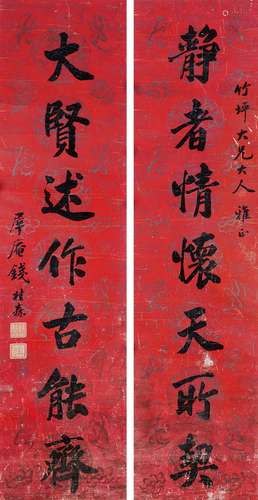 竹坪大兄大人雅正
静者情懷天所契
大賢述作古能齊
犀庵錢桂森